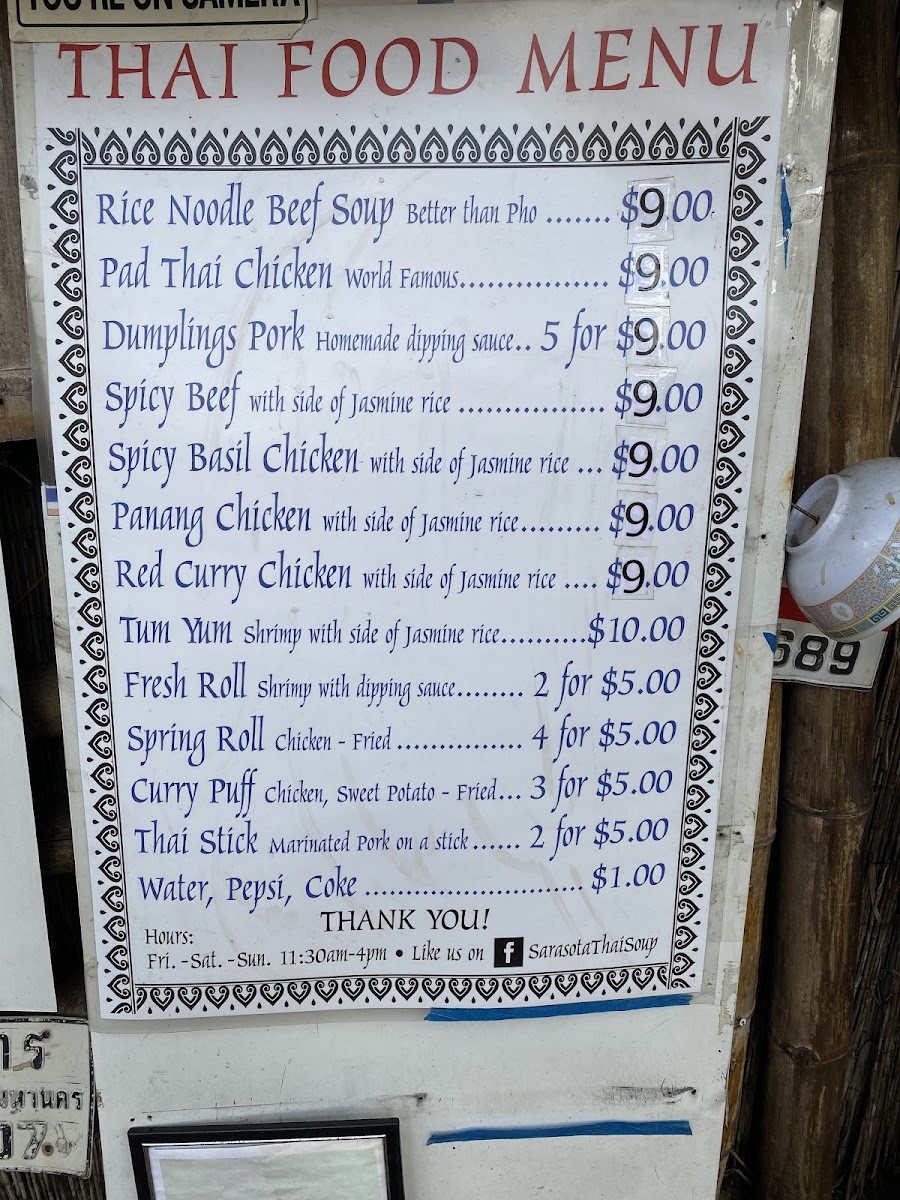 YOU'RE ON CAMERA
THAI FOOD MENU
Rice Noodle Beef Soup Better than Pho ....... $9.00
Pad Thai Chicken World Famous.................. $9.00
Dumplings Pork Homemade dipping sauce.. 5 for $9.00
Spicy Beef with side of Jasmine rice ................. $9.00
Spicy Basil Chicken with side of Jasmine rice ... $9.00
Panang Chicken with side of Jasmine rice......... $9.00
Red Curry Chicken with side of Jasmine rice .... $9.00
Tum Yum Shrimp with side of Jasmine rice...........$10.00
Fresh Roll Shrimp with dipping sauce........ 2 for $5.00
Spring Roll Chicken - Fried ................ 4 for $5.00
Curry Puff Chicken, Sweet Potato - Fried... 3 for $5.00
Thai Stick Marinated Pork on a stick ...... 2 for $5.00
Water, Pepsi, Coke ............................ $1.00
THANK YOU!
Hours:
Fri. -Sat. -Sun. 11:30am-4pm • Like us on f SarasotaThaiSoup
689